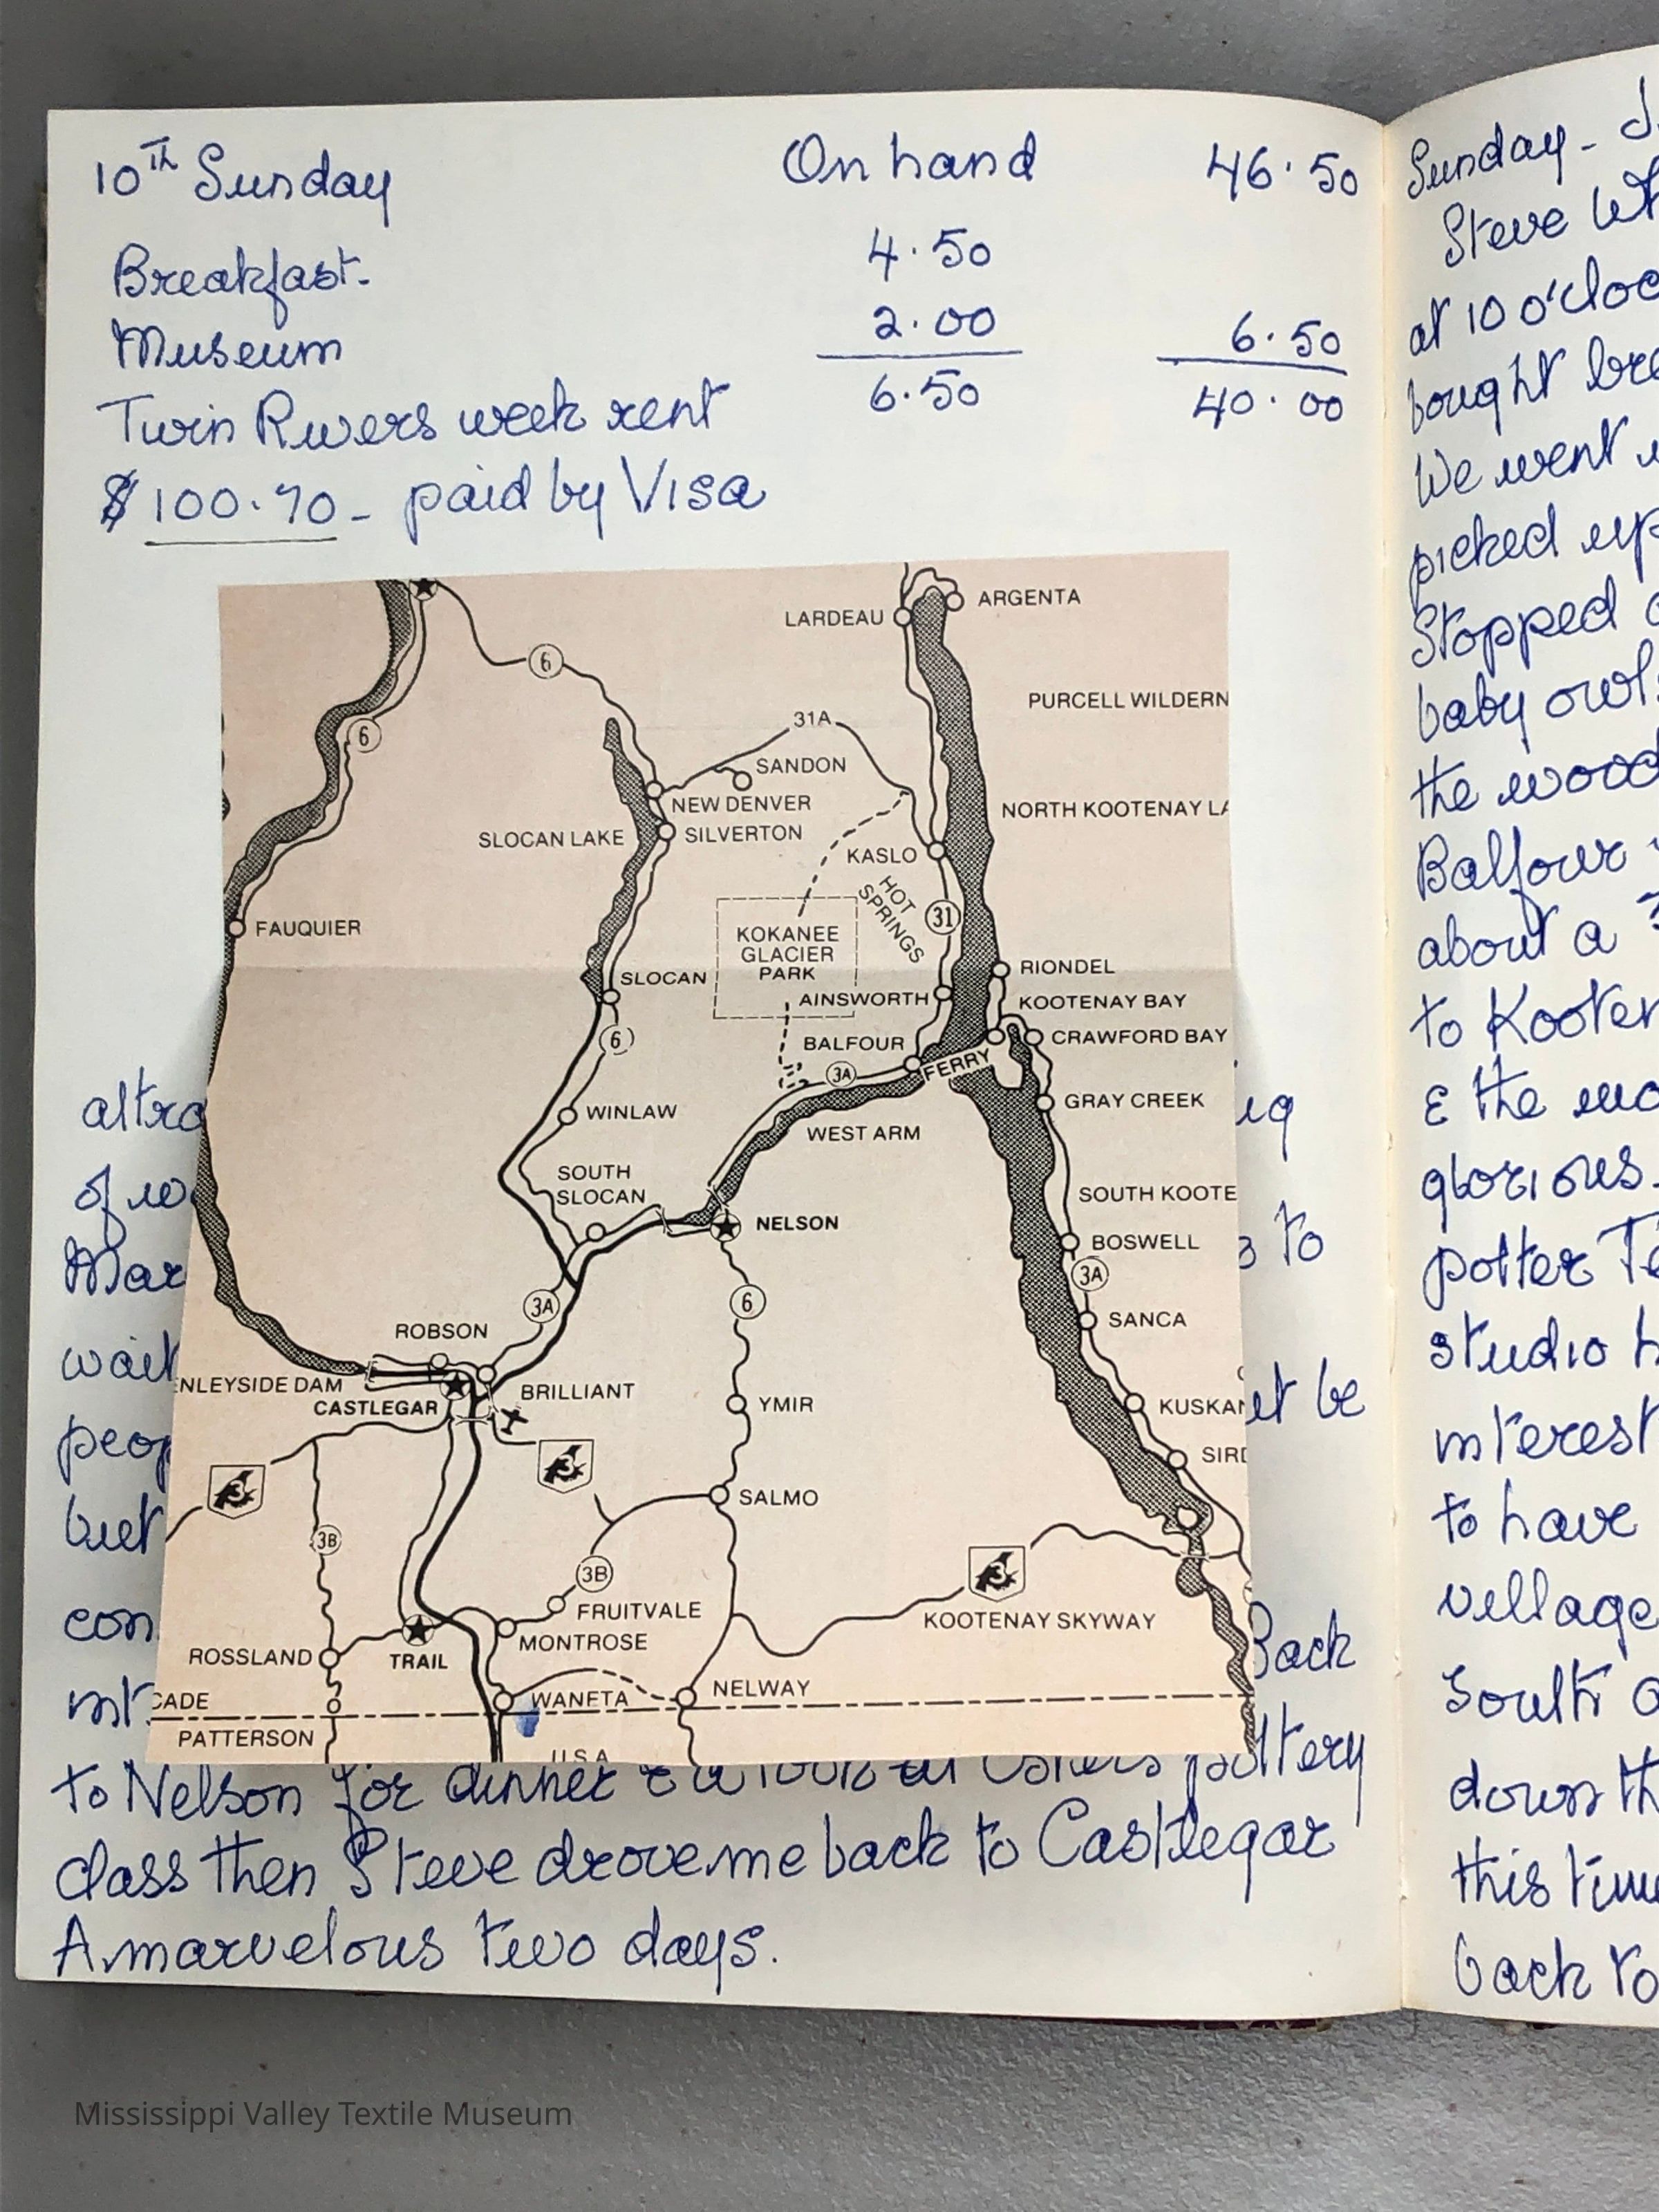 10TH Sunday On hand 46.50
Breakfast. 4.50
Museum 2.00 6.50
Twin Rivers week rent 6.50 40.00
$100.70 - paid by Visa
ARGENTA
LARDEAU
6
PURCELL WILDERN
31A
6
SANDON
NEW DENVER
NORTH KOOTENAY LA
SLOCAN LAKE
SILVERTON
KASLO
HOT
SPRINGS
31
FAUQUIER
KOKANEE
GLACIER
PARK
RIONDEL
SLOCAN
AINSWORTH
KOOTENAY BAY
6
BALFOUR
CRAWFORD BAY
FERRY
3A
GRAY CREEK
WINLAW
WEST ARM
SOUTH
SLOCAN
SOUTH KOOTE
NELSON
BOSWELL
3A
6
3A
SANCA
ROBSON
ENLEYSIDE DAM
BRILLIANT
CASTLEGAR
YMIR
KUSKAN
SIRD
3
3
SALMO
3B
3
3B
FRUITVALE
KOOTENAY SKYWAY
MONTROSE
ROSSLAND
TRAIL
NELWAY
CADE
WANETA
PATTERSON
U.S.A
altra
of wo
Mar to
wait
peop et be
but
con Back
int
to Nelson for dinner & a look at pottery
class then Steve drove me back to Castlegar
A marvelous two days.
Sunday - J
Steve
at 10 o'cloc
bought bre
We went
picked up
Stopped
baby owls
the wood
Balfour
about a
to Kooten
& the mo
glorious.
potter Te
studio h
interest
to have
village
South
down th
this time
back to
Mississippi Valley Textile Museum